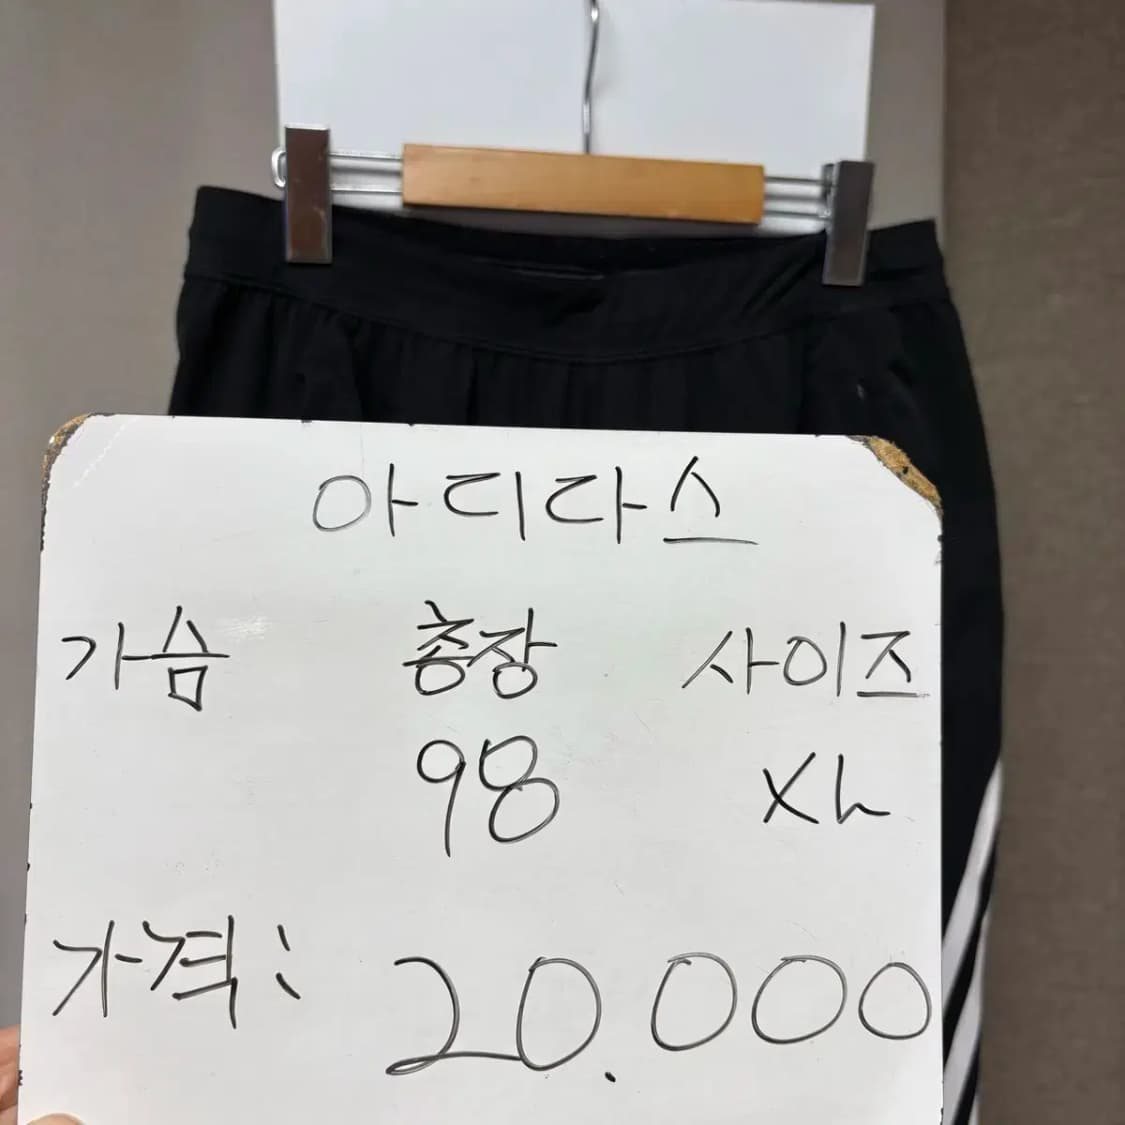 아디다스
가슴 총장 사이즈
98 XL
가격: 20.000